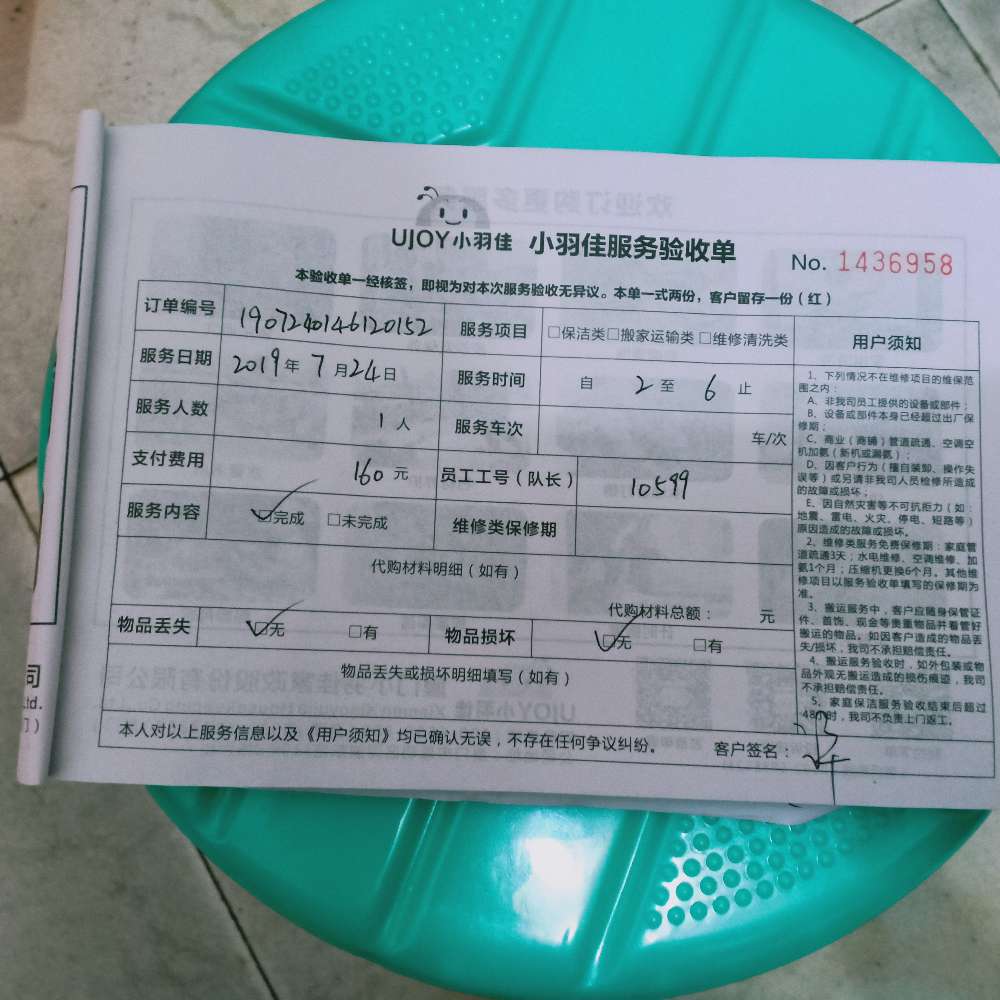 UJOY小羽佳 小羽佳服务验收单 No. 1436958
本验收单一经核签，即视为对本次服务验收无异议。本单一式两份，客户留存一份（红）
订单编号 1907240146120152 服务项目 □保洁类□搬家运输类 □维修清洗类
服务日期 2019年 7月24日 服务时间 自 2 至 6 止
服务人数 1人 服务车次 车/次
支付费用 160元 员工工号（队长） 10599
服务内容 ☑完成 □未完成 维修类保修期
代购材料明细（如有）
代购材料总额： 元
物品丢失 ☑无 □有 物品损坏 ☑无 □有
物品丢失或损坏明细填写（如有）
本人对以上服务信息以及《用户须知》均已确认无误，不存在任何争议纠纷。 客户签名：
用户须知
1、下列情况不在维修项目的维保范
围之内：
A、非我司员工提供的设备或部件；
B、设备或部件本身已经超过出厂保
修期；
C、商业（商铺）管道疏通、空调空
机加氨（新机或漏氨）；
D、因客户行为（擅自装卸、操作失
误等）或另请非我司人员检修所造成
的故障或损坏；
E、因自然灾害等不可抗拒力（如：
地震、雷电、火灾、停电、短路等）
原因造成的故障或损坏。
2、维修类服务免费保修期：家庭管
道疏通3天；水电维修、空调维修、加
氨1个月；压缩机更换6个月。其他维
修项目以服务验收单填写的保修期为
准。
3、搬运服务中，客户应随身保管证
件、首饰、现金等贵重物品并看管好
搬运的物品。如因客户造成的物品丢
失/损坏，我司不承担赔偿责任。
4、搬运服务验收时，如外包装或物
品外观无搬运造成的损伤痕迹，我司
不承担赔偿责任。
5、家庭保洁服务验收结束后超过
48小时，我司不负责上门返工。
司
Ltd.